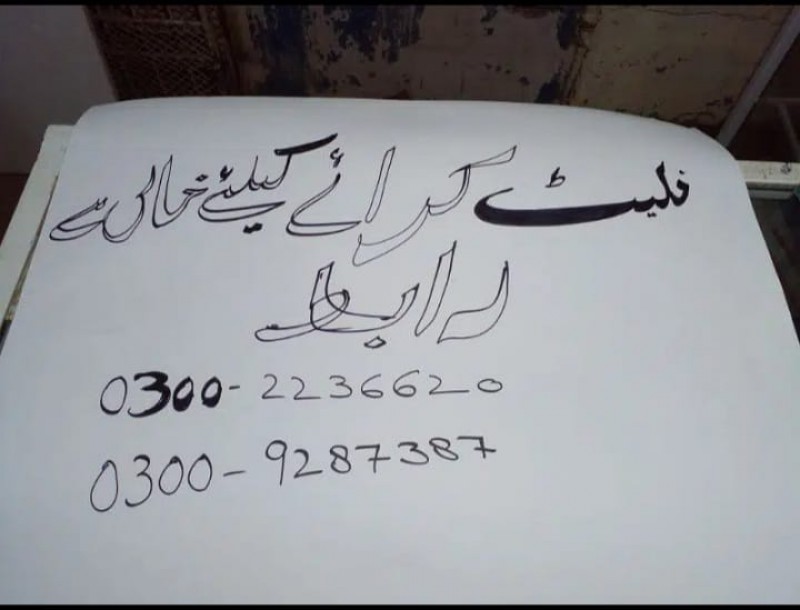 فلیٹ کرائے کیلئے خالی ہے
رابطہ
0300-2236620
0300-9287387